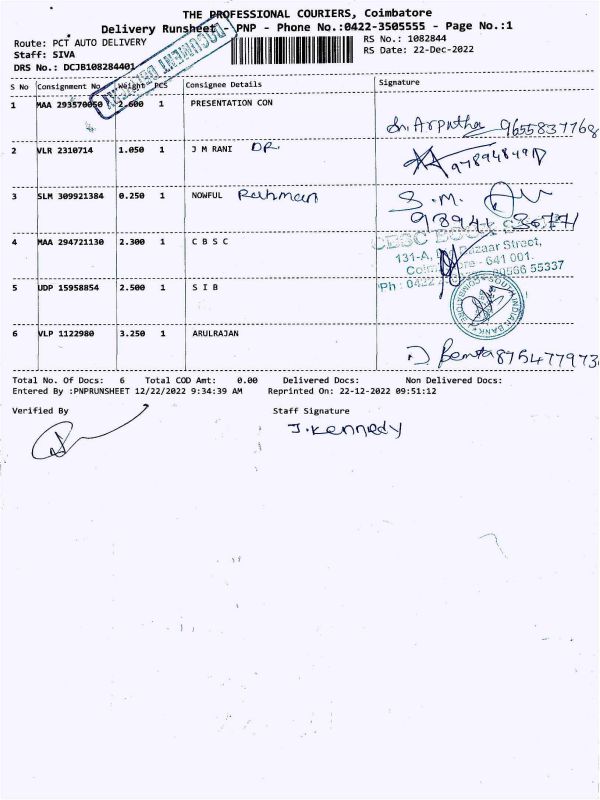 THE PROFESSIONAL COURIERS, Coimbatore
Delivery Runsheet - PNP - Phone No.:0422-3505555 - Page No.:1
Route: PCT AUTO DELIVERY
RS No.: 1082844
Staff: SIVA
RS Date: 22-Dec-2022
DRS No.: DCJB108284401
DOCUMENT
S No Consignment No Weight PCS Consignee Details Signature
1 MAA 293570050 2.600 1 PRESENTATION CON
Arputha 9655837768
2 VLR 2310714 1.050 1 J M RANI DR.
3 SLM 309921384 0.250 1 NOWFUL Rahman S.M.
4 MAA 294721130 2.300 1 C B S C
131-A, Bazaar Street,
641 001.
Ph : 0422 90566 55337
5 UDP 15958854 2.500 1 S I B
SOUTH INDIAN BANK
6 VLP 1122980 3.250 1 ARULRAJAN
Total No. Of Docs: 6 Total COD Amt: 0.00 Delivered Docs: Non Delivered Docs:
Entered By :PNPRUNSHEET 12/22/2022 9:34:39 AM Reprinted On: 22-12-2022 09:51:12
Verified By Staff Signature
J. Kennedy